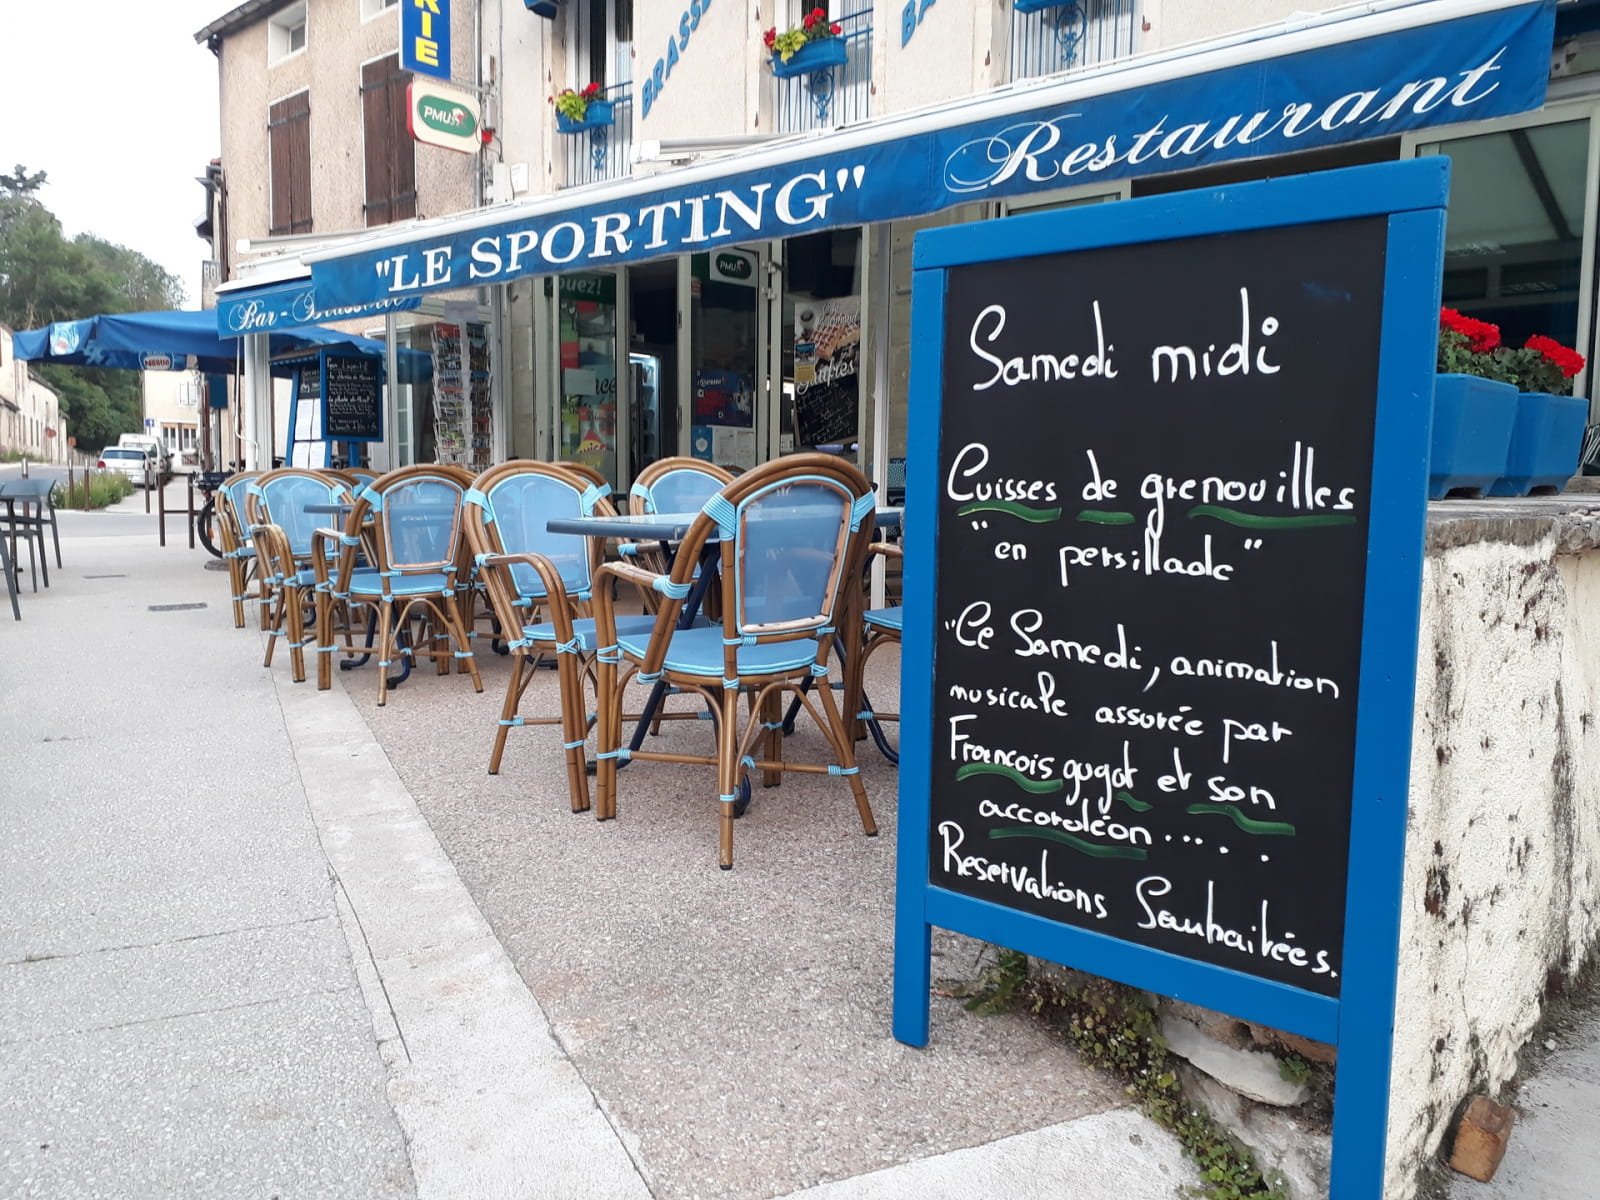 RIE
PMU
BRASSE
BA
"LE SPORTING"
Restaurant
Bar - Brasserie
PMU
Samedi midi
Cuisses de grenouilles
"en persillade"
"Ce Samedi, animation
musicale assurée par
François gugot et son
accordéon.....
Reservations Souhaitées.